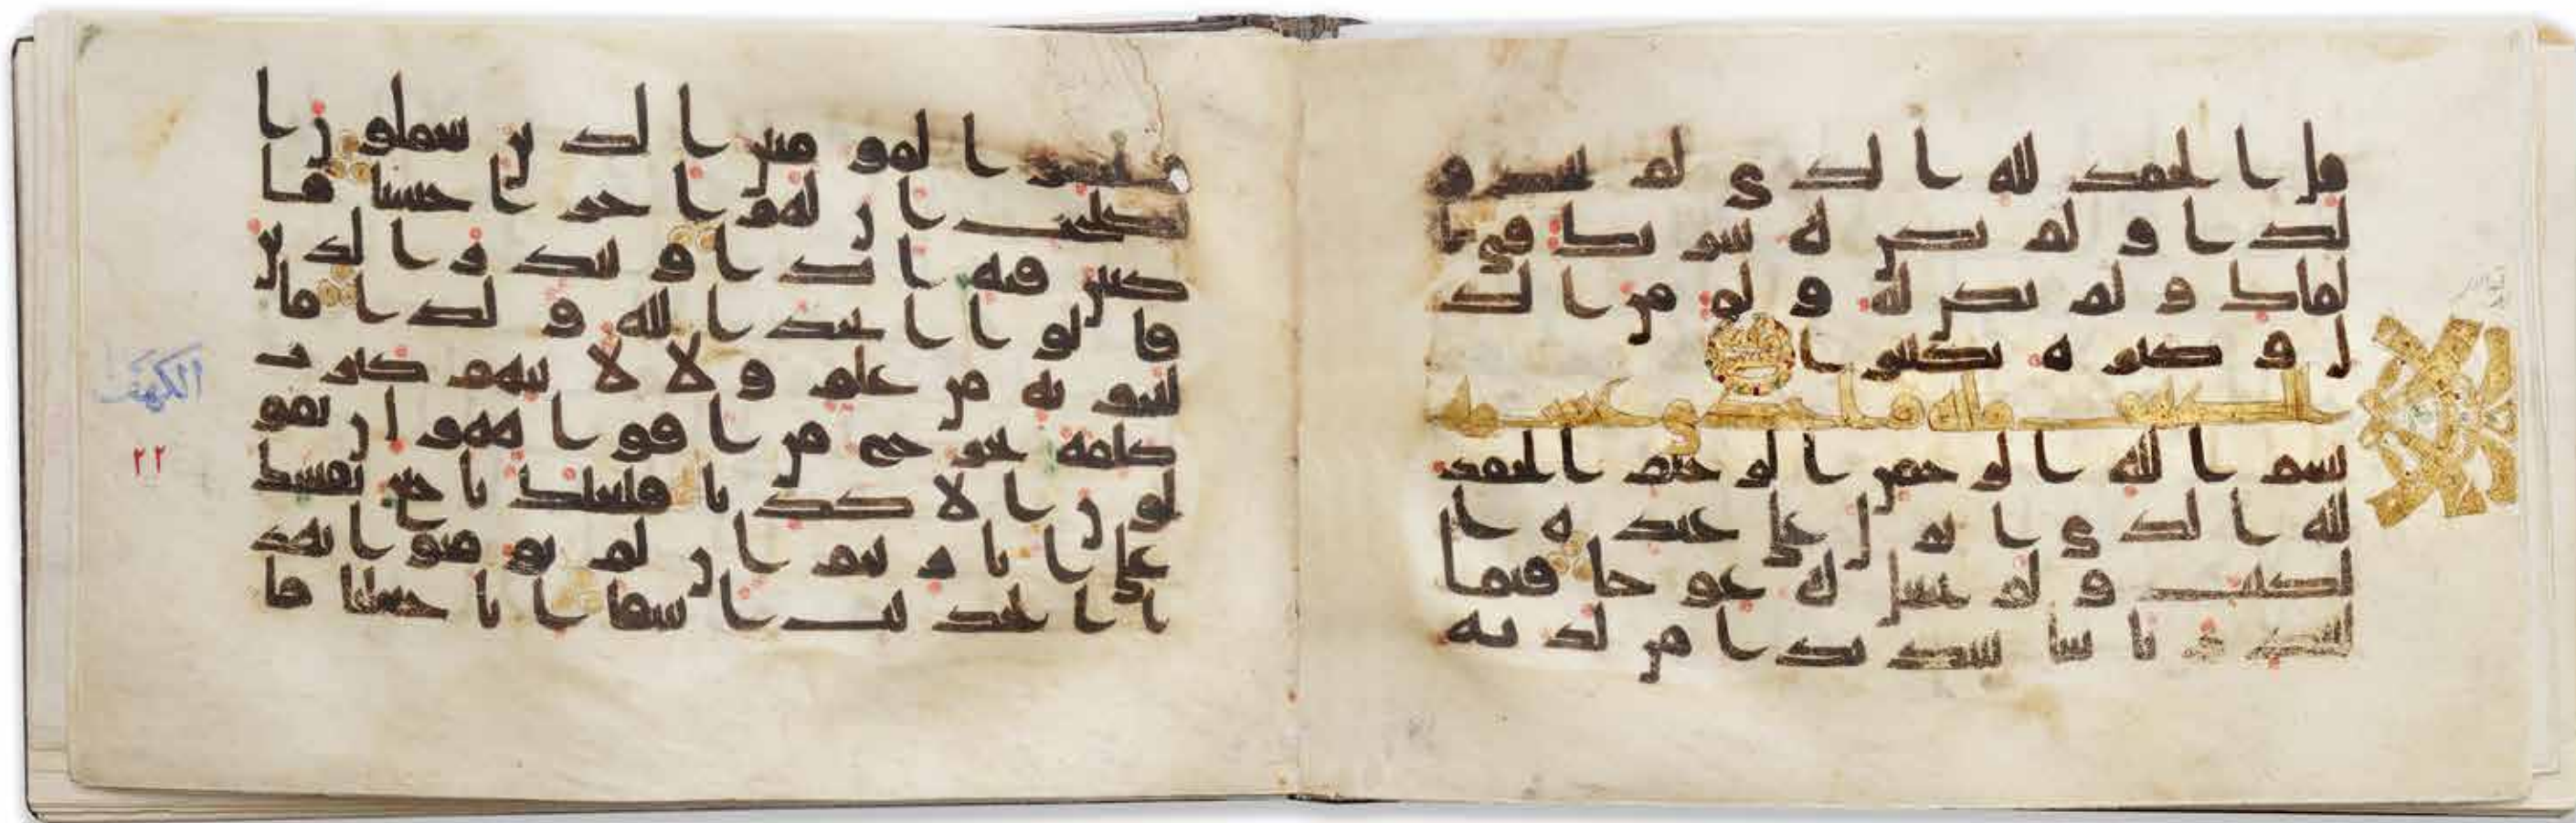 قل الحمد لله الذي لم يتخذ و
لدا ولم يكن له شريك في ا
لملك ولم يكن له ولي من الذ
ل وكبره تكبيرا
الكهف مائة و
بسم الله الرحمن الرحيم الحمد
لله الذي انزل على عبده ا
لكتب ولم يجعل له عوجا قيما
لينذر باسا شديدا من لدنه
ويبشر المومنين الذين يعملون ا
لصلحت ان لهم اجرا حسنا ما
كثين فيه ابدا وينذر الذين
قالوا اتخذ الله ولدا ما
لهم به من علم ولا لابيهم كبرت
كلمة تخرج من افوههم ان يقو
لون الا كذبا فلعلك باخع نفسك
على اثارهم ان لم يومنوا بهذ
ا الحديث اسفا انا جعلنا ما
الكهف
٢٢